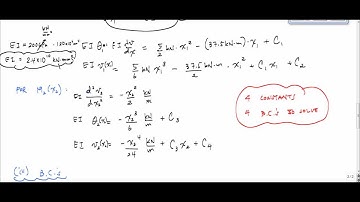 kN/m²
EI = 200 · 120×10⁶ m⁴
EI = 2.4×10 kN·mm²
EI θ₁: EI dv/dx = 5/2 kN · x₁² - (37.5 kN·m) · x₁ + C₁
EI v₁(x) = 5/6 kN x₁³ - 37.5/2 kN·m · x₁² + C₁x₁ + C₂
FOR M₂(x₂):
EI d²v₂/dx² = - x₂²/2 kN/m
EI θ₂(x) = - x₂³/6 kN/m + C₃
EI v₂(x) = - x₂⁴/24 kN/m + C₃x₂ + C₄
4 CONSTANTS
4 B.C.'s TO SOLVE
B.C.'s